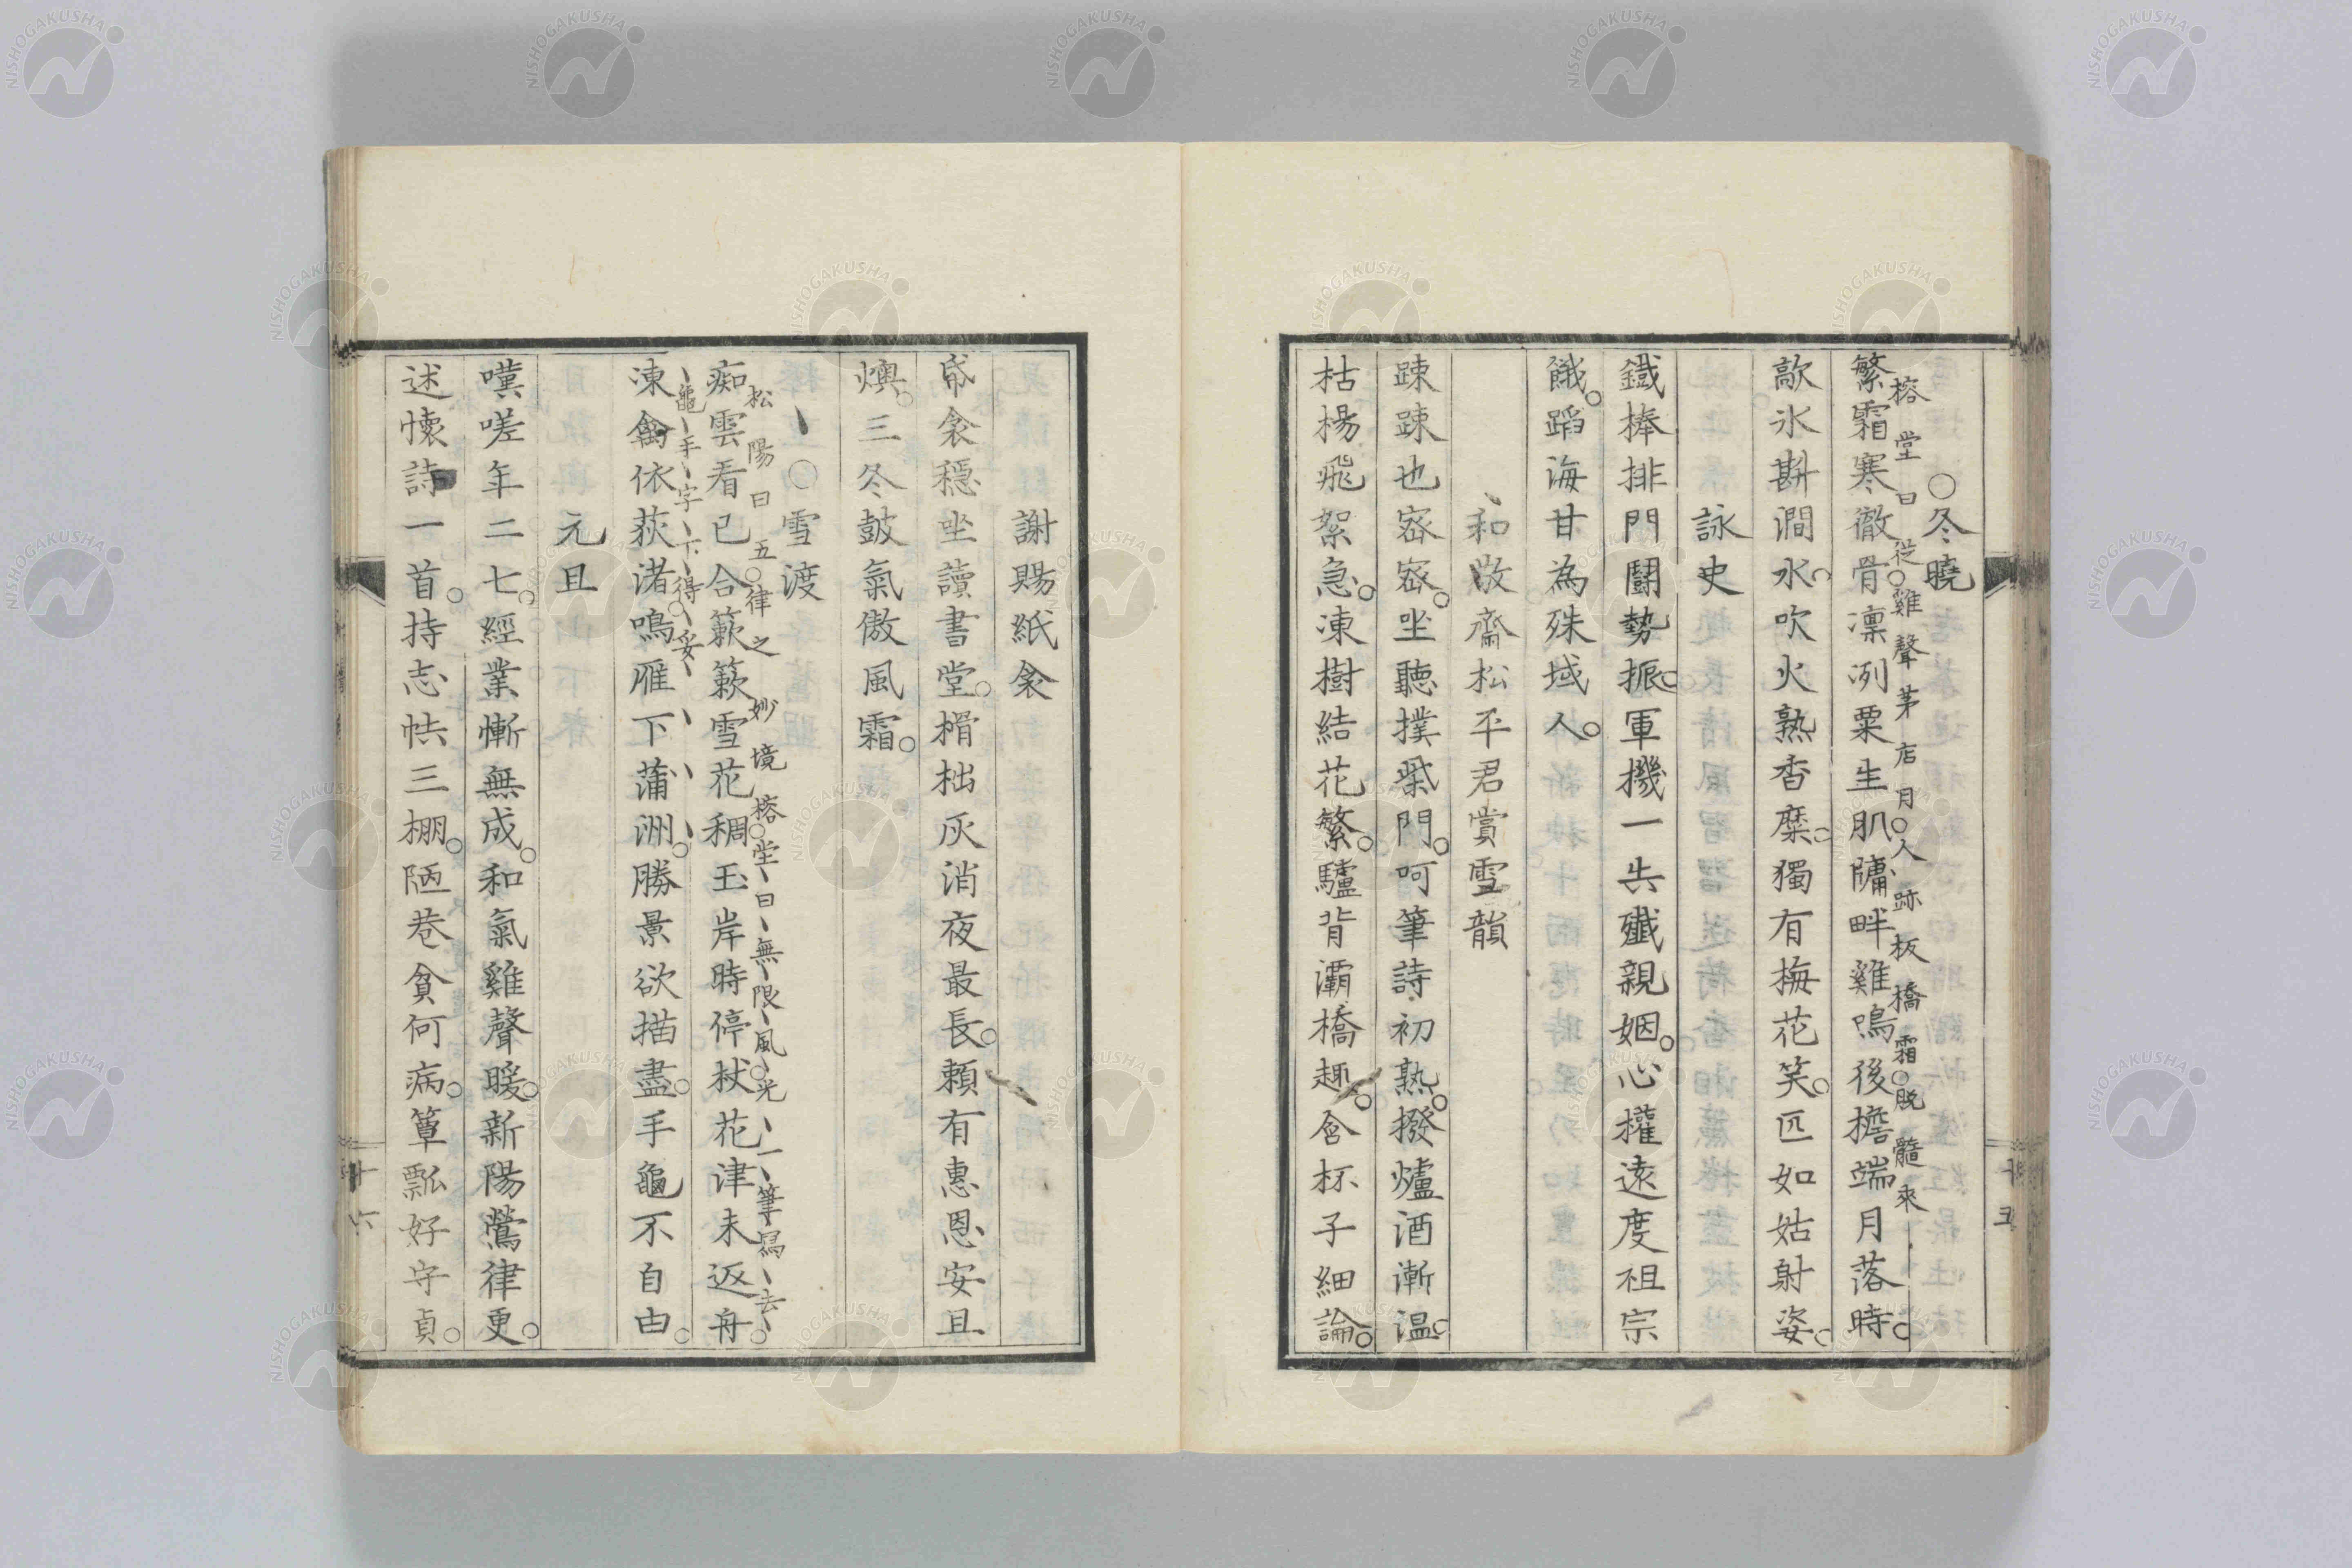 ○冬曉
榕堂曰從雞聲茅店月人跡板橋霜脱髓來
繁霜寒徹骨凛冽粟生肌牗畔雞鳴後檐端月落時
敲氷斟澗水吹火熟香糜獨有梅花笑匹如姑射姿
詠史
鐵棒排門鬪勢振軍機一失殲親姻心權遠度祖宗
餓蹈海甘為殊域人
和敬齋松平君賞雪韻
踈踈也宻宻坐聽撲柴門呵筆詩初熟撥爐酒漸温
枯楊飛絮急凍樹結花繁驢背灞橋趣含杯子細論
十五
謝賜紙衾
帋衾穏坐讀書堂榾柮灰消夜最長頼有惠恩安且
燠三冬皷氣傲風霜
○雪渡
松陽曰五律之妙境榕堂曰無限風光一筆寫去
痴雲看已合簌簌雪花稠玉岸時停杖花津未返舟
龜手字下得妥
凍禽依荻渚鳴雁下蒲洲勝景欲描盡手龜不自由
元旦
嘆嗟年二七經業慚無成和氣雞聲暖新陽鶯律更
述懐詩一首持志帙三棚陋巷貧何病簞瓢好守貞
十六
NISHOGAKUSHA